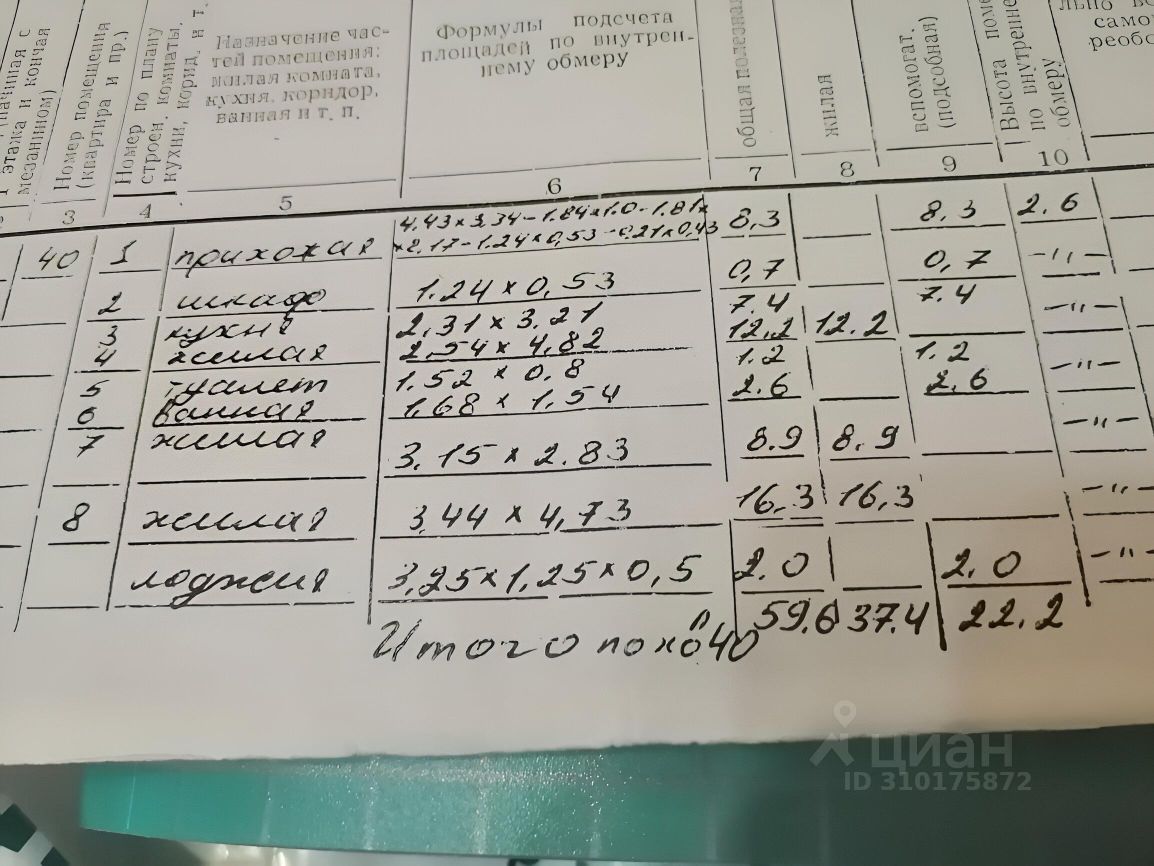 этажа (начиная с мезанином) и кончая
Номер помещения (квартира и пр.)
Номер по плану строен. комнаты, кухни, корид. и т.
Назначение час-
тей помещения:
жилая комната,
кухня, коридор,
ванная и т. п.
Формулы подсчета
площадей по внутрен-
нему обмеру
общая полезная
жилая
вспомогат. (подсобная)
Высота поме
по внутренне
обмеру
само
реобо
3 4 5 6 7 8 9 10
4.43×3,34-1.84×1.0-1.81×
40 1 прихожая ×2.17-1.24×0,53-0,21×0,43 8,3 8.3 2.6
2 шкаф 1.24×0,53 0,7 0,7 -"-
3 кухня 2,31×3,21 7.4 7.4
4 жилая 2,54×4,82 12,2 12.2 -"-
5 туалет 1.52×0,8 1.2 1.2
6 ванная 1,68×1,54 2.6 2.6 -"-
7 жилая 3,15×2.83 8.9 8.9 -"-
8 жилая 3,44×4,73 16,3 16,3 -"-
лоджия 3,25×1,25×0,5 2.0 2.0 -"-
Итого по 40 59,6 37.4 22.2
циан
ID 310175872